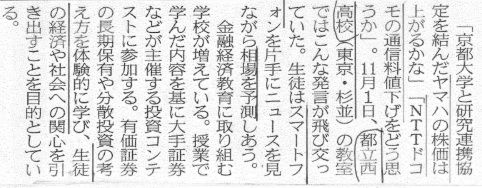 「京都大学と研究連携協
定を結んだヤマハの株価は
上がるかな」「NTTドコ
モの通信料値下げをどう思
うか」。11月1日、都立西
高校（東京・杉並）の教室
ではこんな発言が飛び交っ
ていた。生徒はスマートフ
ォンを片手にニュースを見
ながら相場を予測しあう。
金融経済教育に取り組む
学校が増えている。授業で
学んだ内容を基に大手証券
などが主催する投資コンテ
ストに参加する。有価証券
の長期保有や分散投資の考
え方を体験的に学び、生徒
の経済や社会への関心を引
き出すことを目的としてい
る。